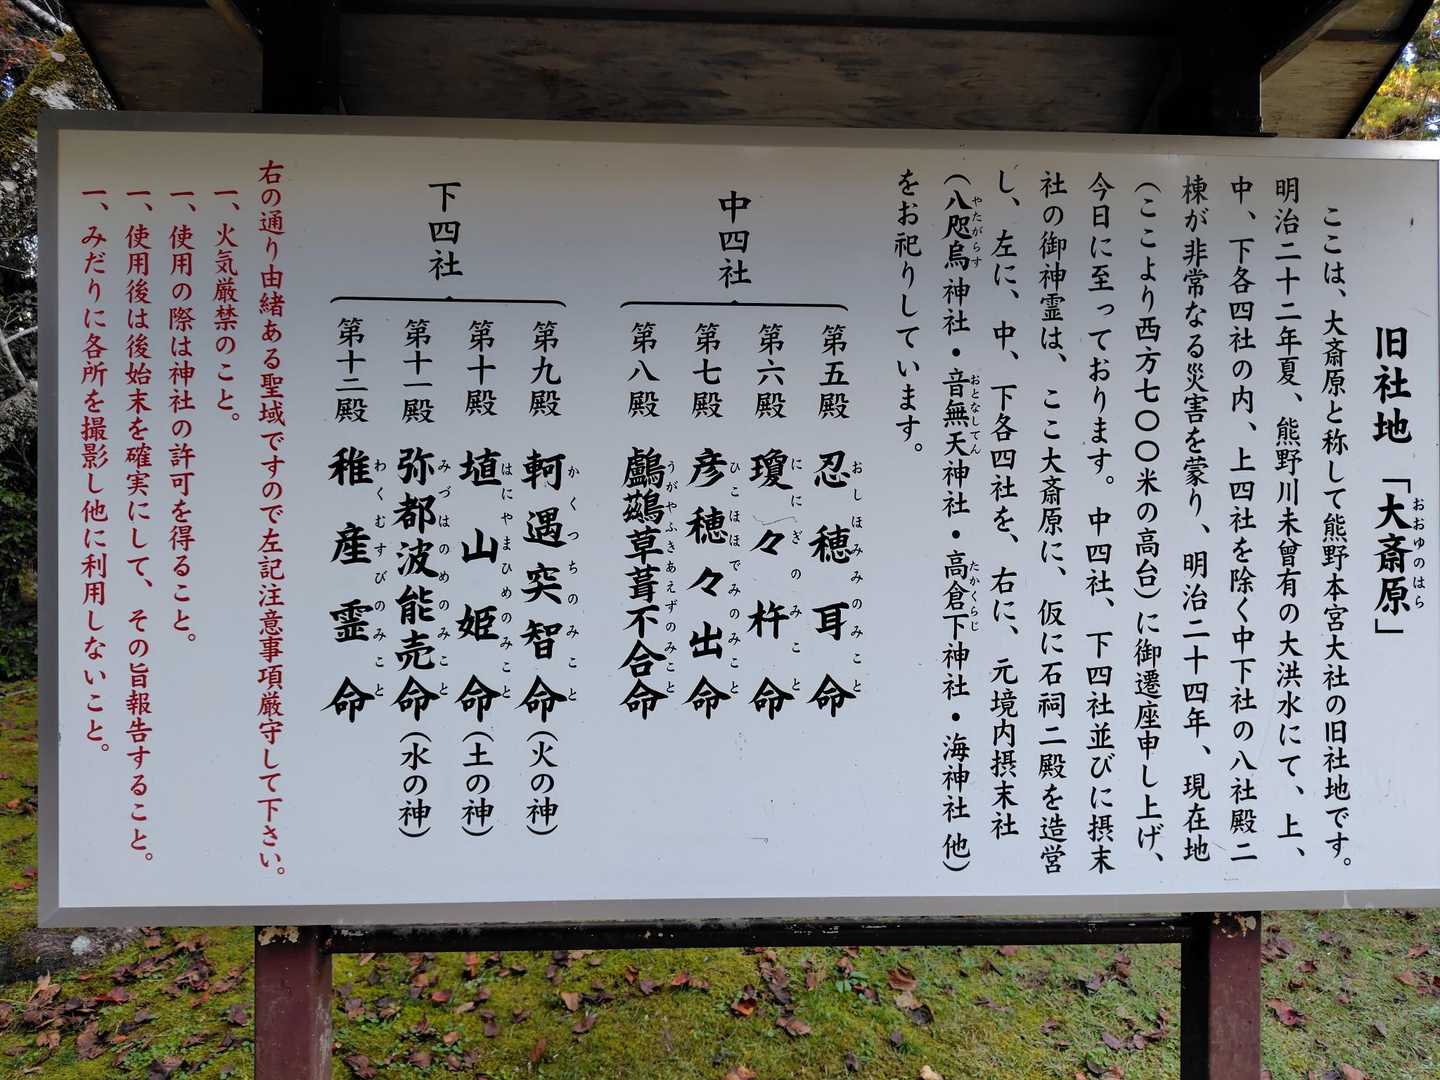 旧社地「大斎原」
おおゆのはら
ここは、大斎原と称して熊野本宮大社の旧社地です。
明治二十二年夏、熊野川未曾有の大洪水にて、上、
中、下各四社の内、上四社を除く中下社の八社殿二
棟が非常なる災害を蒙り、明治二十四年、現在地
（ここより西方七〇〇米の高台）に御遷座申し上げ、
今日に至っております。中四社、下四社並びに摂末
社の御神霊は、ここ大斎原に、仮に石祠二殿を造営
し、左に、中、下各四社を、右に、元境内摂末社
（八咫烏神社・音無天神社・高倉下神社・海神社 他）
やたがらす おとなしてん たかくらじ
をお祀りしています。
中四社
第五殿 忍穂耳命
おしほみみのみこと
第六殿 瓊々杵命
ににぎのみこと
第七殿 彦穂々出命
ひこほほでみのみこと
第八殿 鸕鶿草葺不合命
うがやふきあえずのみこと
下四社
第九殿 軻遇突智命（火の神）
かくつちのみこと
第十殿 埴山姫命（土の神）
はにやまひめのみこと
第十一殿 弥都波能売命（水の神）
みづはのめのみこと
第十二殿 稚産霊命
わくむすびのみこと
右の通り由緒ある聖域ですので左記注意事項厳守して下さい。
一、火気厳禁のこと。
一、使用の際は神社の許可を得ること。
一、使用後は後始末を確実にして、その旨報告すること。
一、みだりに各所を撮影し他に利用しないこと。